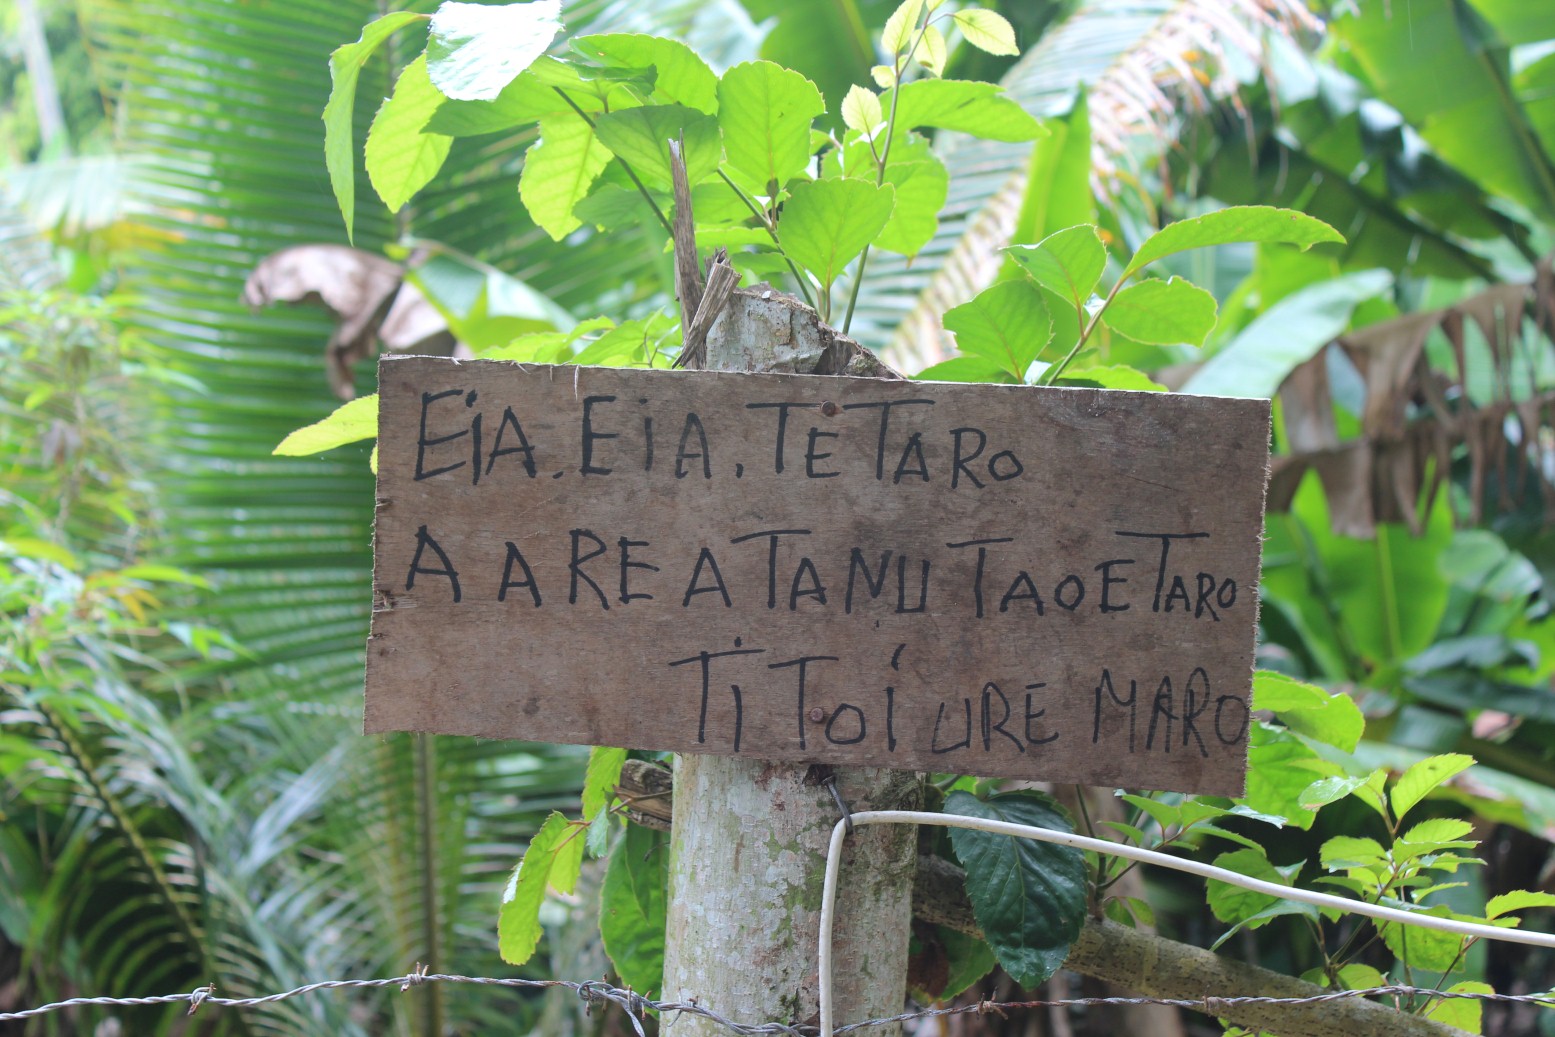 EiA, EiA, TE TARO
A AREA TANU TAO E TARO
Ti Toi URE MARO